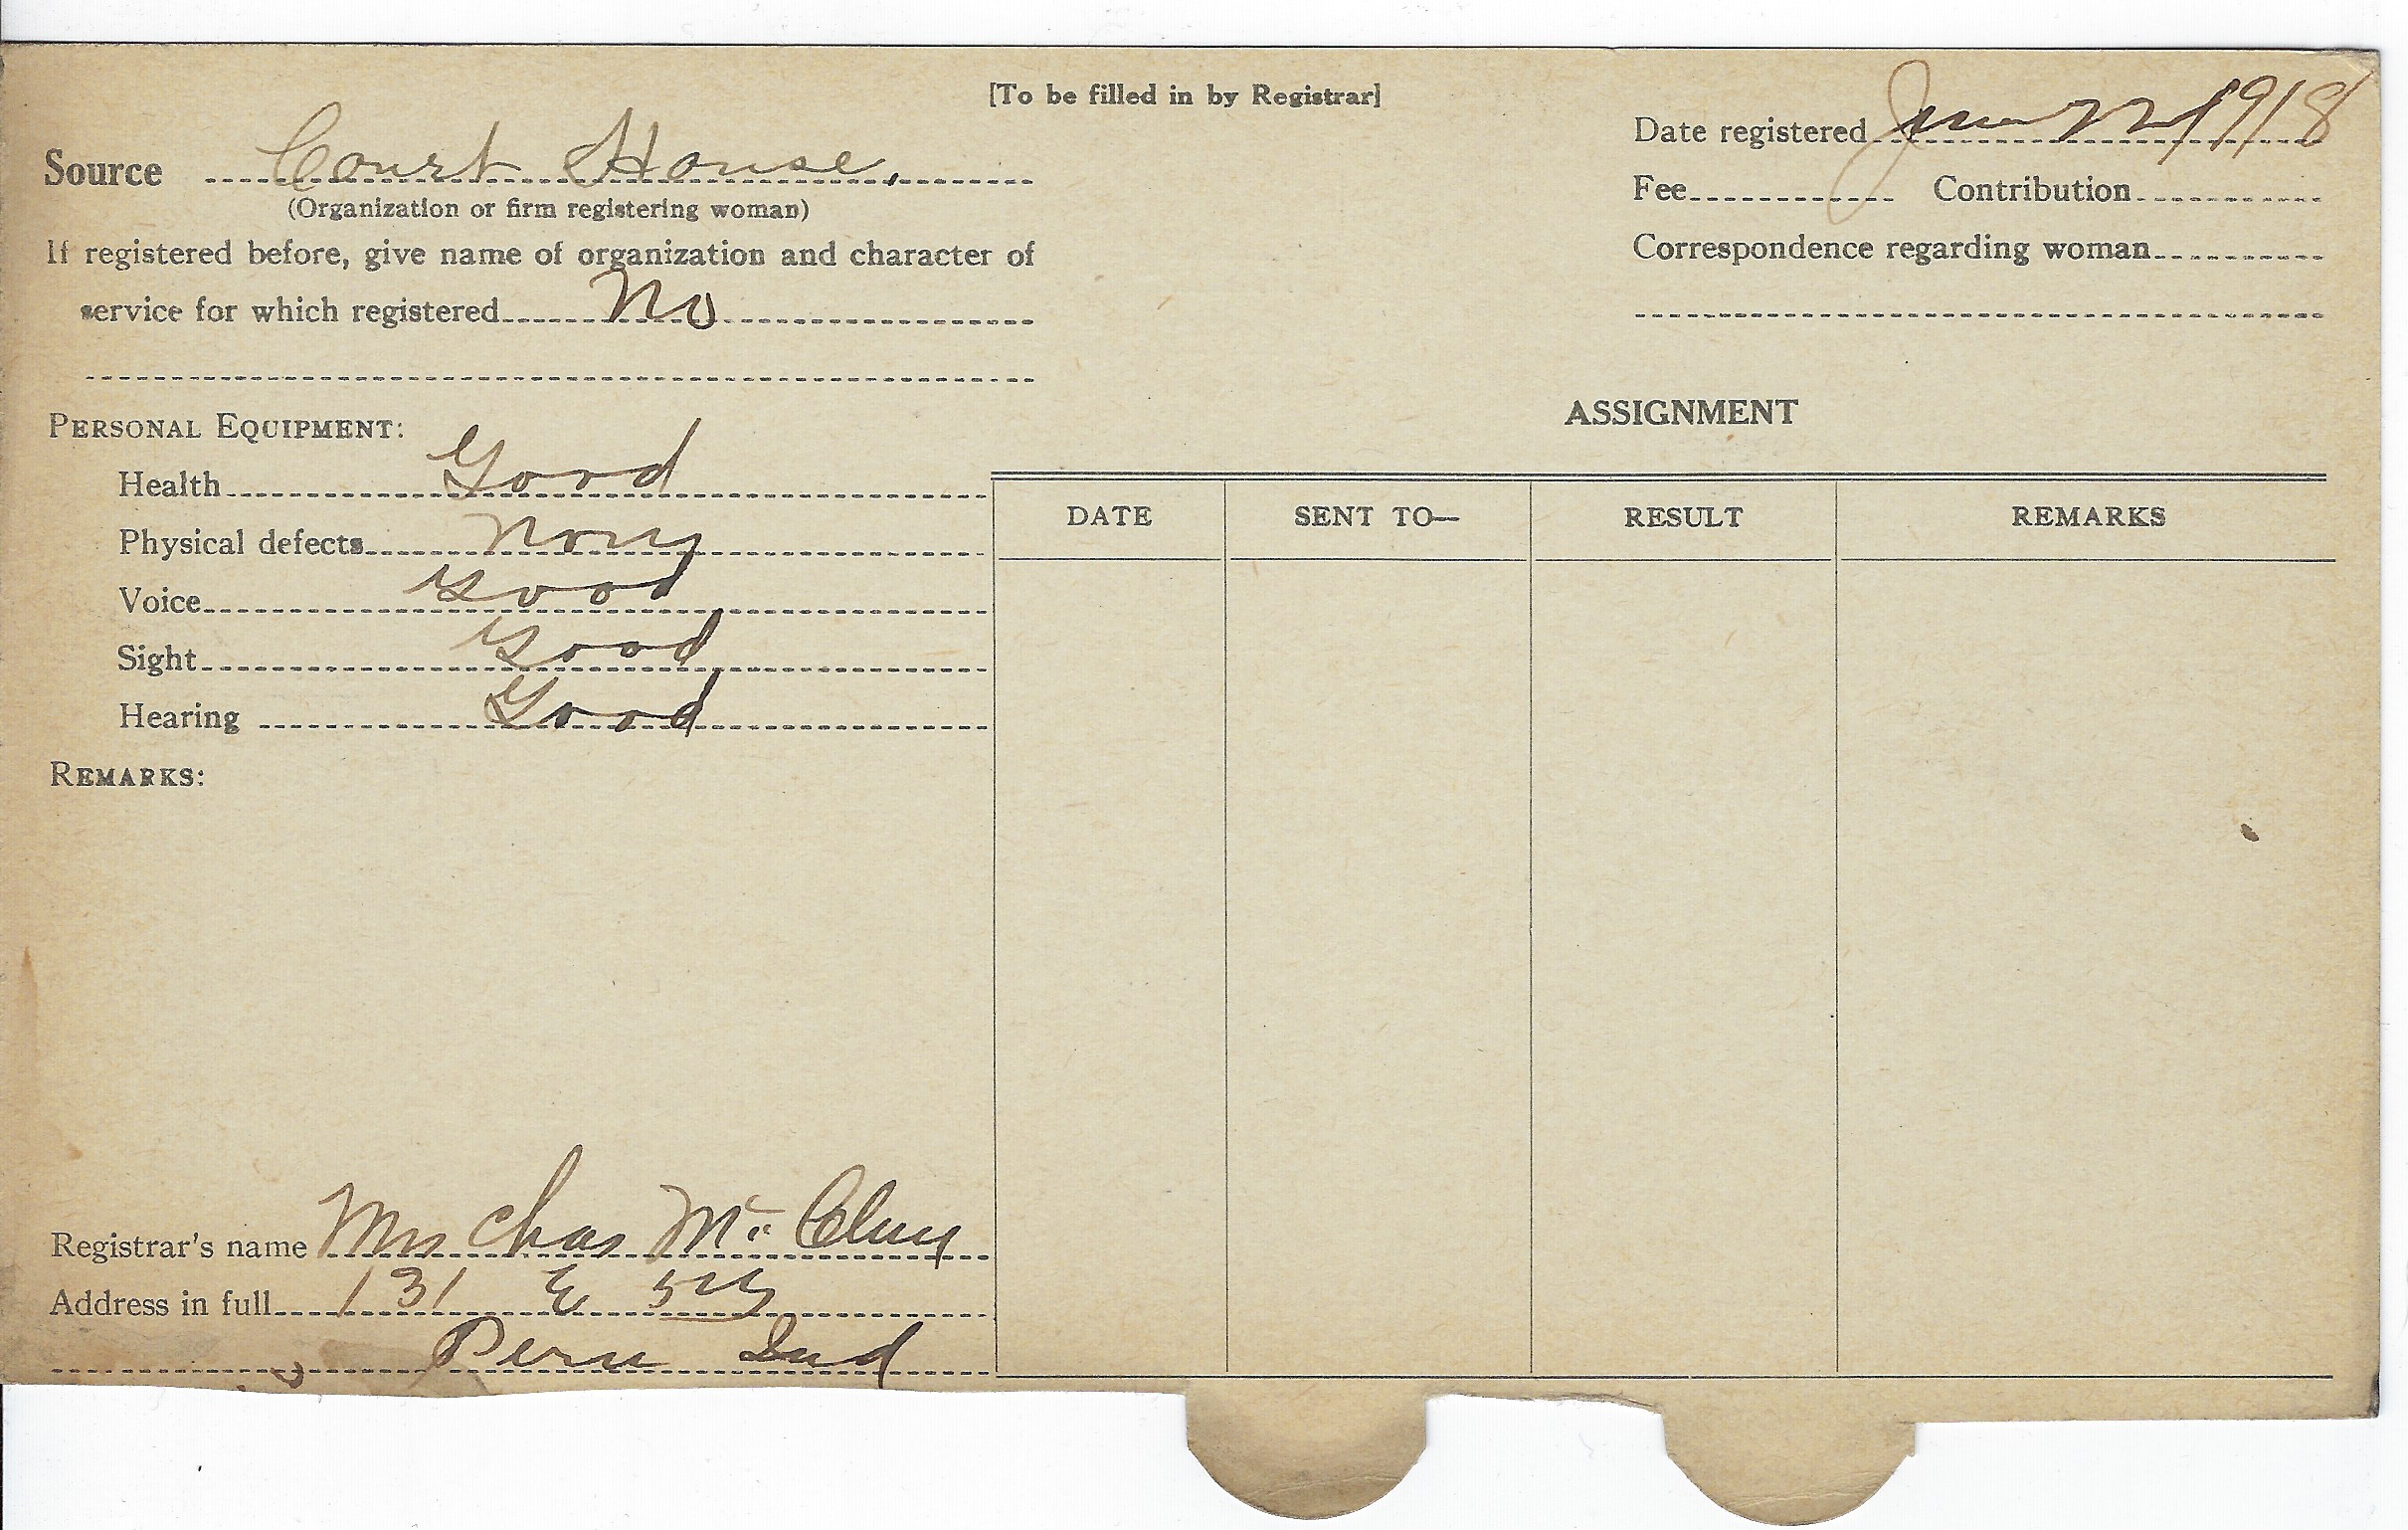 [To be filled in by Registrar]
Source Court House.
(Organization or firm registering woman)
If registered before, give name of organization and character of
service for which registered No
Date registered June 22 1918
Fee Contribution
Correspondence regarding woman
PERSONAL EQUIPMENT:
Health Good
Physical defects None
Voice Good
Sight Good
Hearing Good
REMARKS:
ASSIGNMENT
DATE SENT TO— RESULT REMARKS
Registrar's name Mrs Chas Mc
Address in full 131 E 5th
Peru Ind